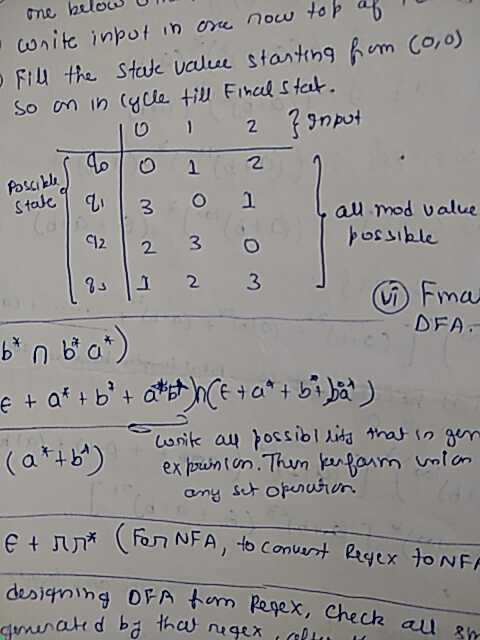 one below
write input in one row top of
Fill the state value starting from (0,0)
So on in cycle till Final state.
0 1 2 } Input
Possible state
q0 0 1 2
q1 3 0 1
q2 2 3 0
q3 1 2 3
all mod value possible
(vi) Fina
DFA.
b* ∩ b* a*)
ε + a* + b* + a*b*) ∩ (ε + a* + b* + ba*)
(a* + b*)
write all possibility that in gen
expression. Then perform union
any set operation.
ε + rr* (For NFA, to convert Regex to NFA
designing DFA from Regex, check all
generated by that regex,